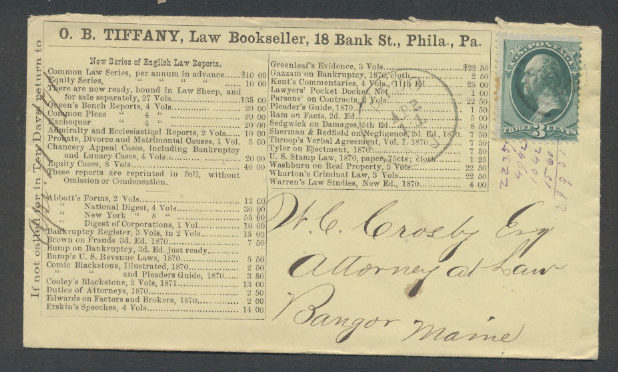 O. B. TIFFANY, Law Bookseller, 18 Bank St., Phila., Pa.
If not called for in Ten Days, return to
New Series of English Law Reports.
Common Law Series, per annum in advance....$10 00
Equity Series, " " " " 10 00
There are now ready, bound in Law Sheep, and
for sale separately, 27 Vols. 135 00
Queen's Bench Reports, 4 Vols. 20 00
Common Pleas " 4 " 20 00
Exchequer " 4 " 20 00
Admiralty and Ecclesiastical Reports, 2 Vols. 10 00
Probate, Divorce and Matrimonial Causes, 1 Vol. 5 00
Chancery Appeal Cases, including Bankruptcy
and Lunacy Cases, 4 Vols. 20 00
Equity Cases, 8 Vols. 40 00
These reports are reprinted in full, without
Omission or Condensation.
Abbott's Forms, 2 Vols. 12 00
" National Digest, 4 Vols. 30 00
" New York " 8 " 55 00
" Digest of Corporations, 1 Vol. 10 00
Bankruptcy Register, 3 Vols. in 2 Vols. 15 00
Brown on Frauds 3d. Ed. 1870. 7 50
Bump on Bankruptcy, 3d. Ed. just ready
Bump's U. S. Revenue Laws, 1870. 5 50
Comic Blackstone, Illustrated, 1870. 2 50
" " and Pleaders Guide, 1870. 3 50
Cooley's Blackstone, 2 Vols, 1871. 13 00
Duties of Attorneys, 1870. 2 00
Edwards on Factors and Brokers, 1870. 2 00
Erskin's Speeches, 4 Vols. 14 00
Greenleaf's Evidence, 3 Vols. $22 50
Gazzam on Bankruptcy, 1870, cloth 2 50
Kent's Commentaries, 4 Vols., 11th Ed. 25 00
Lawyers' Pocket Docket, No. 1 1 00
Parsons' on Contracts, 3 Vols. 22 50
Pleader's Guide, 1870. 1 50
Ram on Facts, 2d. Ed. 5 00
Sedgwick on Damages, 5th Ed. 8 50
Sherman & Redfield on Negligence, 2d. Ed. 1870. 7 50
Throop's Verbal Agreement, Vol. I. 1870. 7 50
Tyler on Ejectment, 1870. 7 50
U. S. Stamp Law, 1870, paper, 75cts; cloth, 1 25
Washburn on Real Property, 3 Vols. 22 50
Wharton's Criminal Law, 3 Vols. 22 50
Warren's Law Studies, New Ed., 1870. 4 00
U.S. POSTAGE
THREE 3 CENTS
APR
W. C. Crosby Esq
Attorney at Law
Bangor Maine